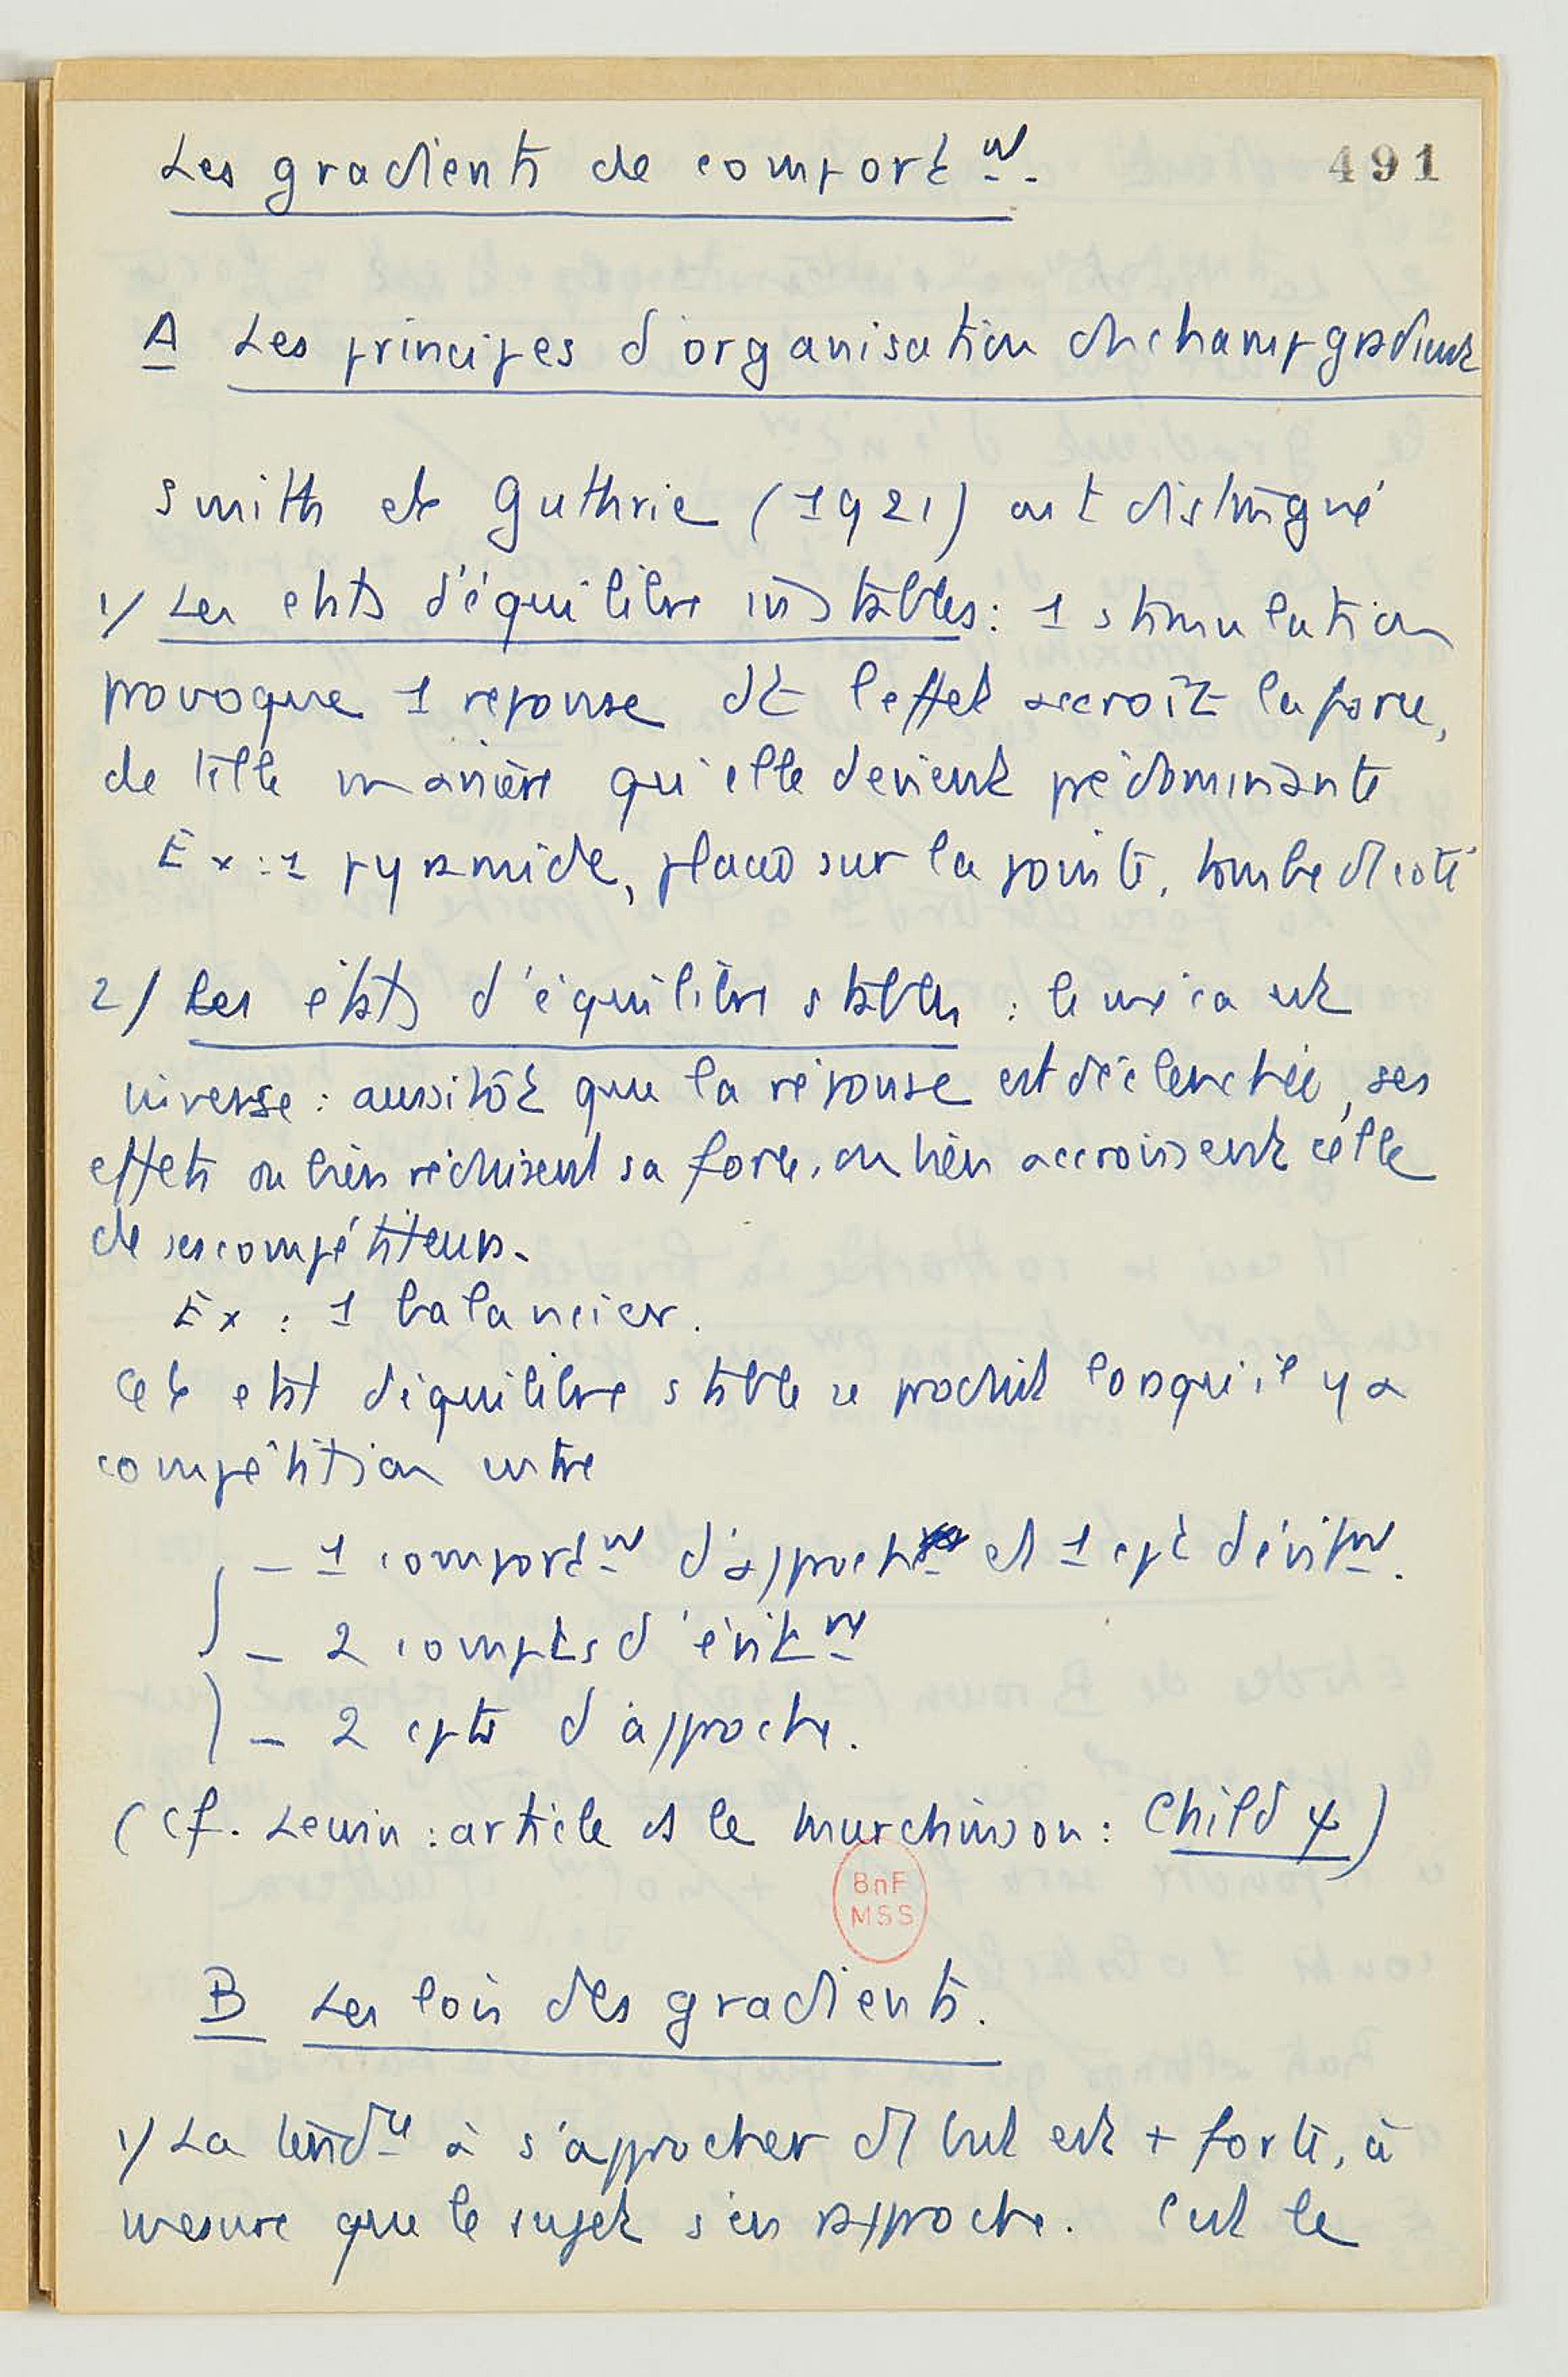 Les gradients de comportt.
491
A Les principes d'organisation du champ gradient
Smith et Guthrie (1921) ont distingué
1/ Les états d'équilibre instables : 1 stimulation
provoque 1 réponse dt l'effet accroît la force,
de telle manière qu'elle devient prédominante
Ex : 1 pyramide, placée sur la pointe, tombe de côté
2/ Les états d'équilibre stables : le mécan est
inverse : aussitôt que la réponse est déclenchée, ses
effets ou bien réduisent sa force, ou bien accroissent celle
de ses compétiteurs.
Ex : 1 balancier.
Cet état d'équilibre stable se produit lorsqu'il y a
compétition entre
– 1 comportt d'approche et 1 cpt d'évitt.
– 2 compts d'évitt
– 2 cpts d'approche.
(cf. Lewin : article ds le Murchison : Child ψ)
BnF
MSS
B Les lois des gradients.
1/ La tendce à s'approcher du but est + forte, à
mesure que le sujet s'en rapproche. C'est le